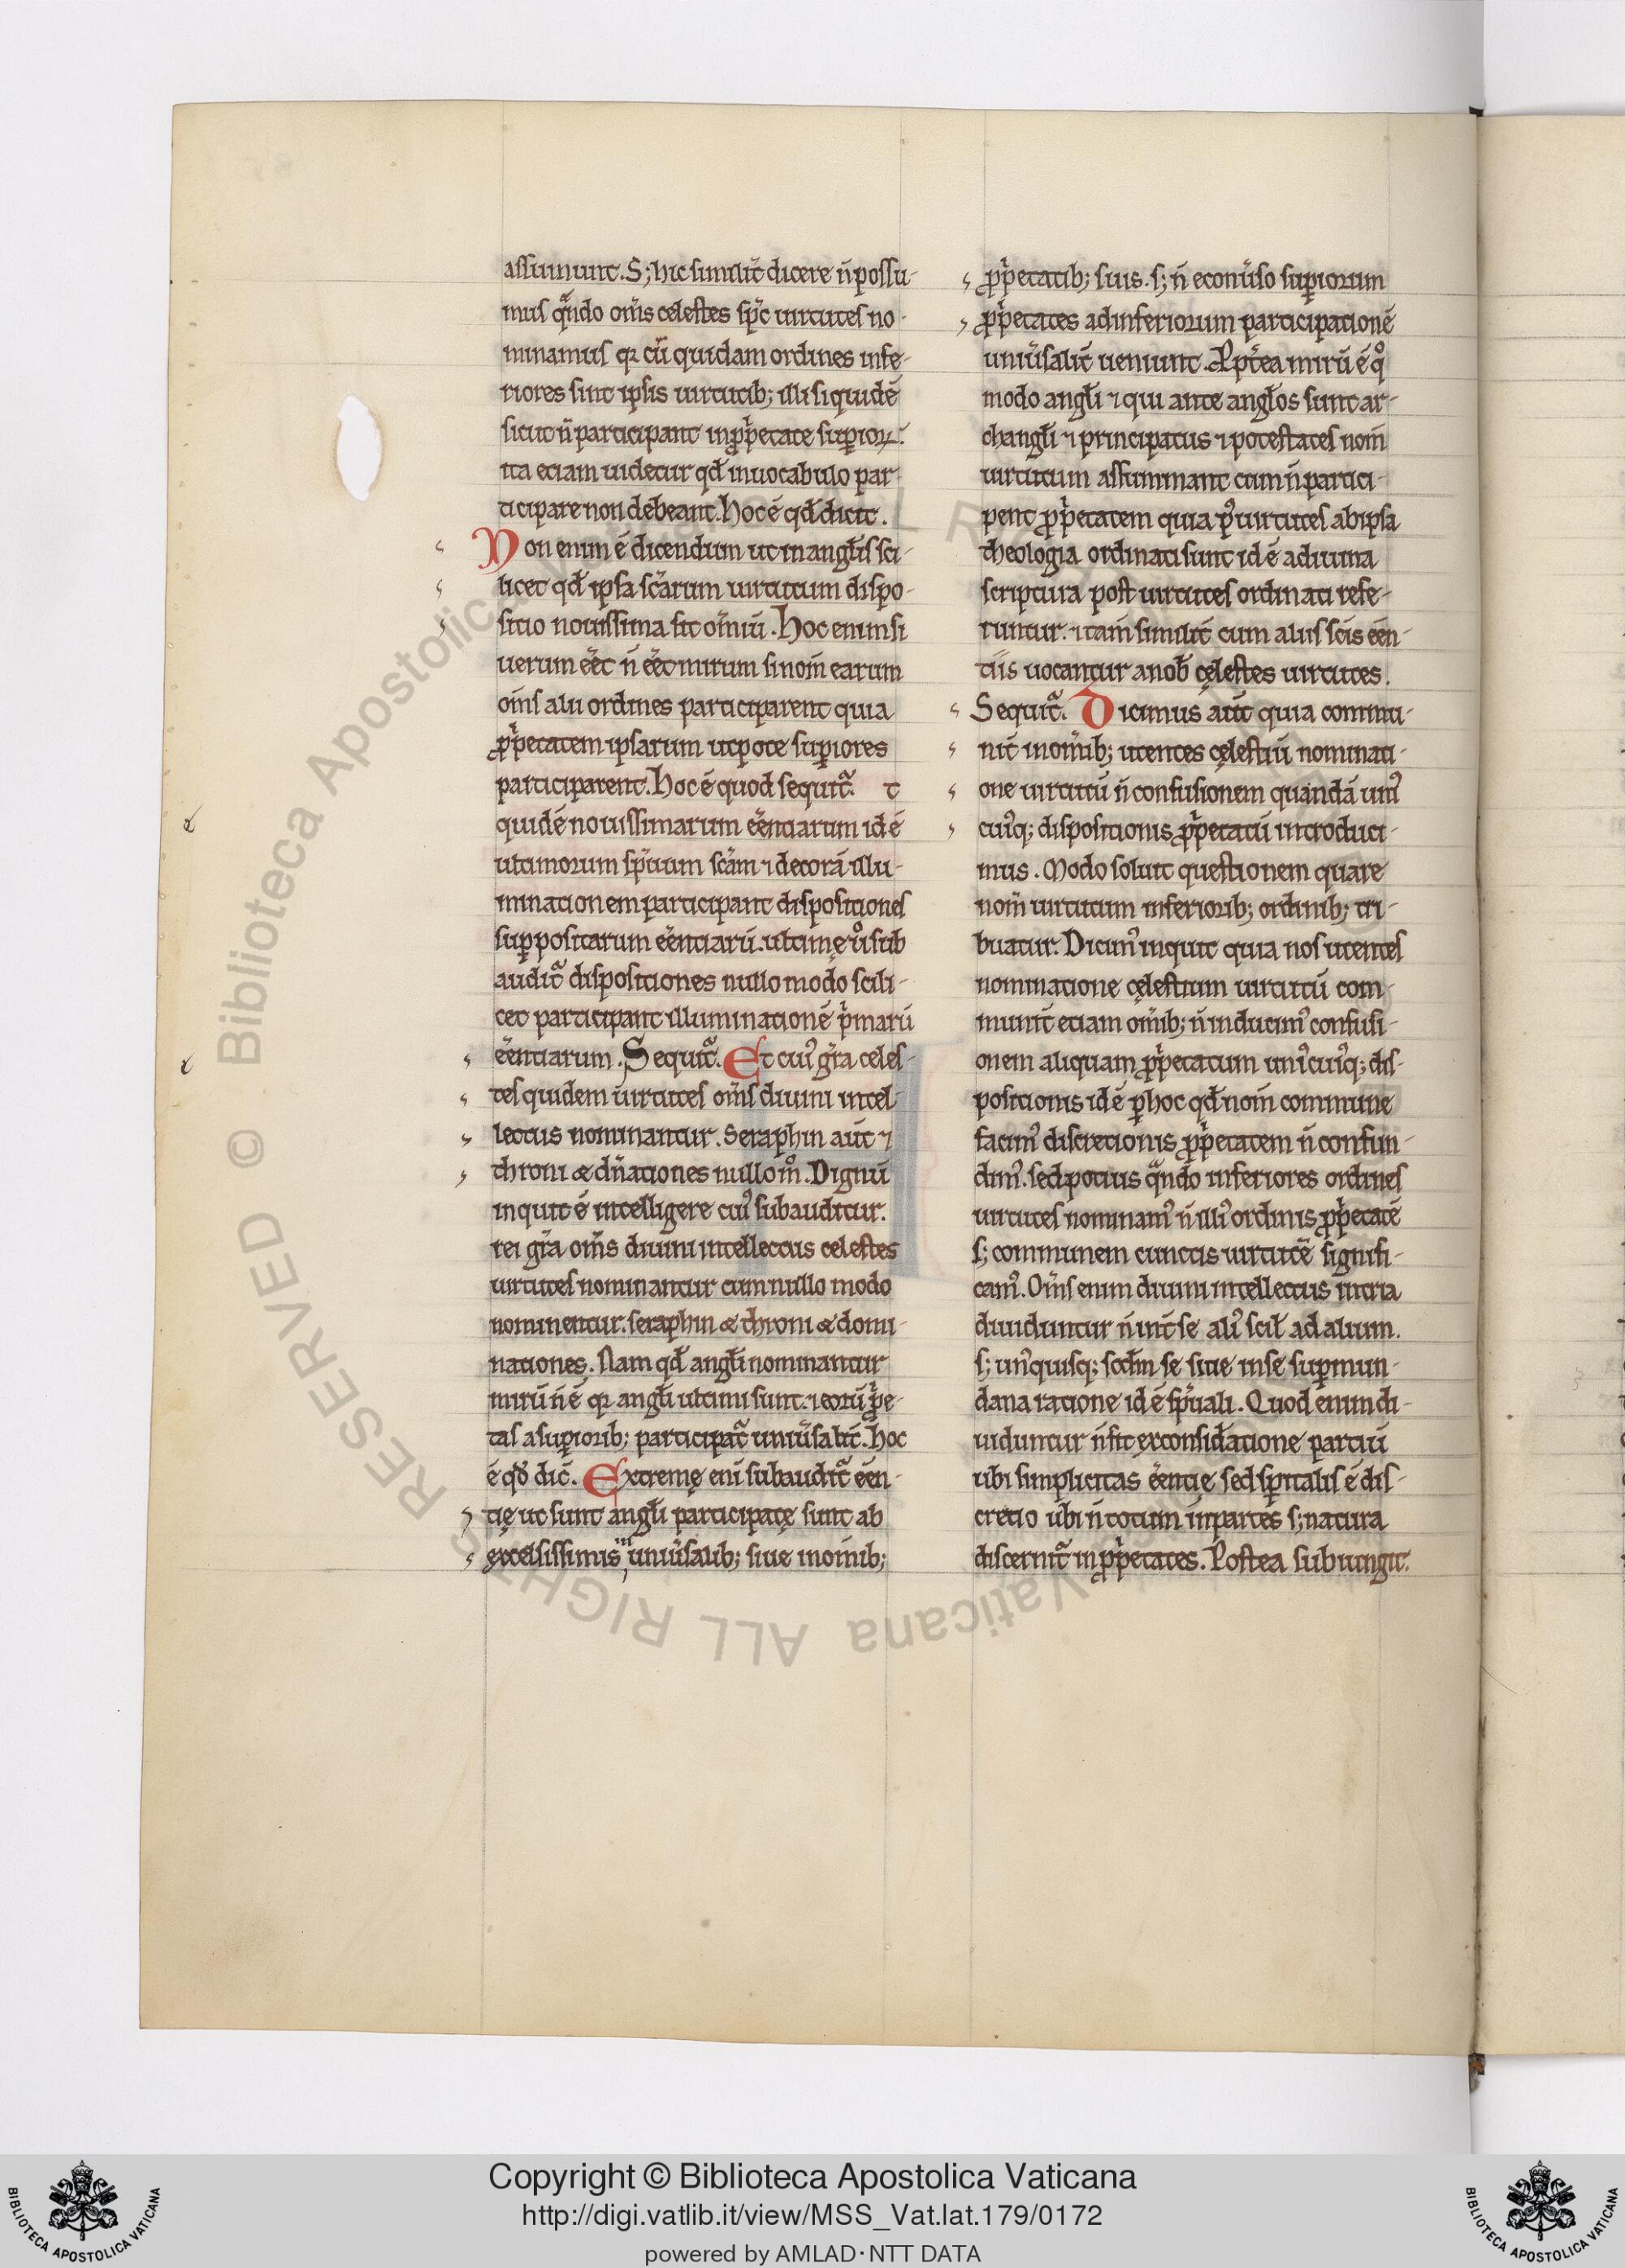 assumunt. S; hic similit̃ dicere n̄ possu-
mus qͣ̃ndo om̄s celestes sp̄c uirtutes no-
minamus qꝛ cū quidam ordines infe-
riores sint ipsis uirtutib; illi siquidē
sicut n̄ participant in ꝓp̄etate suꝑioꝝ.
ita etiam uidetur qd̄ in uocabulo par-
ticipare non debeant. Hoc ē qd̄ dicit.
Non enim ē dicendum ut in angl̄is sci-
licet qd̄ ipsa sc̄arum uirtutum dispo-
sitio nouissima sit om̄iū. Hoc enim si
uerum eēt n̄ eēt mirum si nom̄ earum
om̄s alii ordines participarent quia
ꝓp̄etatem ipsarum utpote suꝑiores
participarent. Hoc ē quod sequit̃. t
quidē nouissimarum eēntiarum id ē
ultimorum sp̄uum sc̄am ⁊ decorā illu-
minationem participant dispositiones
suꝑpositarum eēntiarū. ultimę uͦ sub
audit̃ dispositiones nullo modo scili-
cet participant illuminationē p̄marū
eēntiarum. Sequit̃. Et cuiꝰ gr̄a celes-
tes quidem uirtutes om̄s diuini intel-
lectus nominantur. Seraphin aut̄ ⁊
throni & dn̄ationes nullo mͦ. Dignū
inquit ē intelligere cuiꝰ subauditur.
rei gr̄a om̄s diuini intellectus celestes
uirtutes nominantur cum nullo modo
nominentur. seraphin & throni & domi-
nationes. Nam qd̄ angl̄i nominantur
mirū n̄ ē qꝛ angl̄i ultimi sunt. ⁊ eorū ꝓp̄e-
tas a suꝑiorib; participat̃ uniūsalit̃. Hoc
ē qd̄ dic̄. Extremę eni subaudit̃ eēn-
tię ut sunt angl̄i participatę sunt ab
excelsissimis in uniūsalib; siue in om̄ib;
ꝓp̄etatib; suis. s; n̄ econūso suꝑiorum
ꝓp̄etates ad inferiorum participationē
uniūsalit̃ ueniunt. Ꝓpt̄ea mirū ē qͦ
modo angl̄i ⁊ qui ante angl̄os sunt ar-
changl̄i ⁊ principatus ⁊ potestates nom̄
uirtutum assummant cum n̄ partici-
pent ꝓp̄etatem quia pꝰ uirtutes ab ipsa
theologia ordinati sunt id ē a diuina
scriptura post uirtutes ordinati refe-
runtur. ⁊ tam̄ similit̃ cum aliis sc̄is eēn-
tiis uocantur a nob̄ cęlestes uirtutes.
Sequit̃. Dicimus aut̄ quia commu-
nit̃ in om̄ib; utentes cęlestiū nominati-
one uirtutū n̄ confusionem quandā uniꝰ
cuiꝰq; dispositionis ꝓp̄etatū introduci-
mus. Modo soluit questionem quare
nom̄ uirtutum inferiorib; ordinib; tri-
buatur. Dicimꝰ inquit quia nos utentes
nominatione cęlestium uirtutū com-
munit̃ etiam om̄ib; n̄ inducimꝰ confusi-
onem aliquam ꝓp̄etatum uniꝰcuiꝰq; dis-
positionis id ē ꝑ hoc qd̄ nom̄ commune
facimꝰ discretionis ꝓp̄etatem n̄ confun-
dimꝰ. sed potius qͣ̃ndo inferiores ordines
uirtutes nominamꝰ n̄ illiꝰ ordinis ꝓp̄etatē
s; communem cunctis uirtutē signifi-
camꝰ. Om̄s enim diuini intellectus in tria
diuiduntur n̄ int̃ se aliꝰ scil̄ ad alium.
s; unꝰquisq; scd̄m se siue in se suꝑmun-
dana ratione id ē sp̄uali. Quod enim di-
uiduntur n̄ fit ex considatione partiū
ubi simplicitas eēntię sed sp̄italis ē dis-
cretio ubi n̄ totum in partes s; natura
discernit̃ in ꝓp̄etates. Postea subiungit.
Copyright © Biblioteca Apostolica Vaticana
http://digi.vatlib.it/view/MSS_Vat.lat.179/0172
powered by AMLAD·NTT DATA
BIBLIOTECA APOSTOLICA VATICANA
BIBLIOTECA APOSTOLICA VATICANA
© Biblioteca Apostolica Vaticana ALL RIGHTS RESERVED